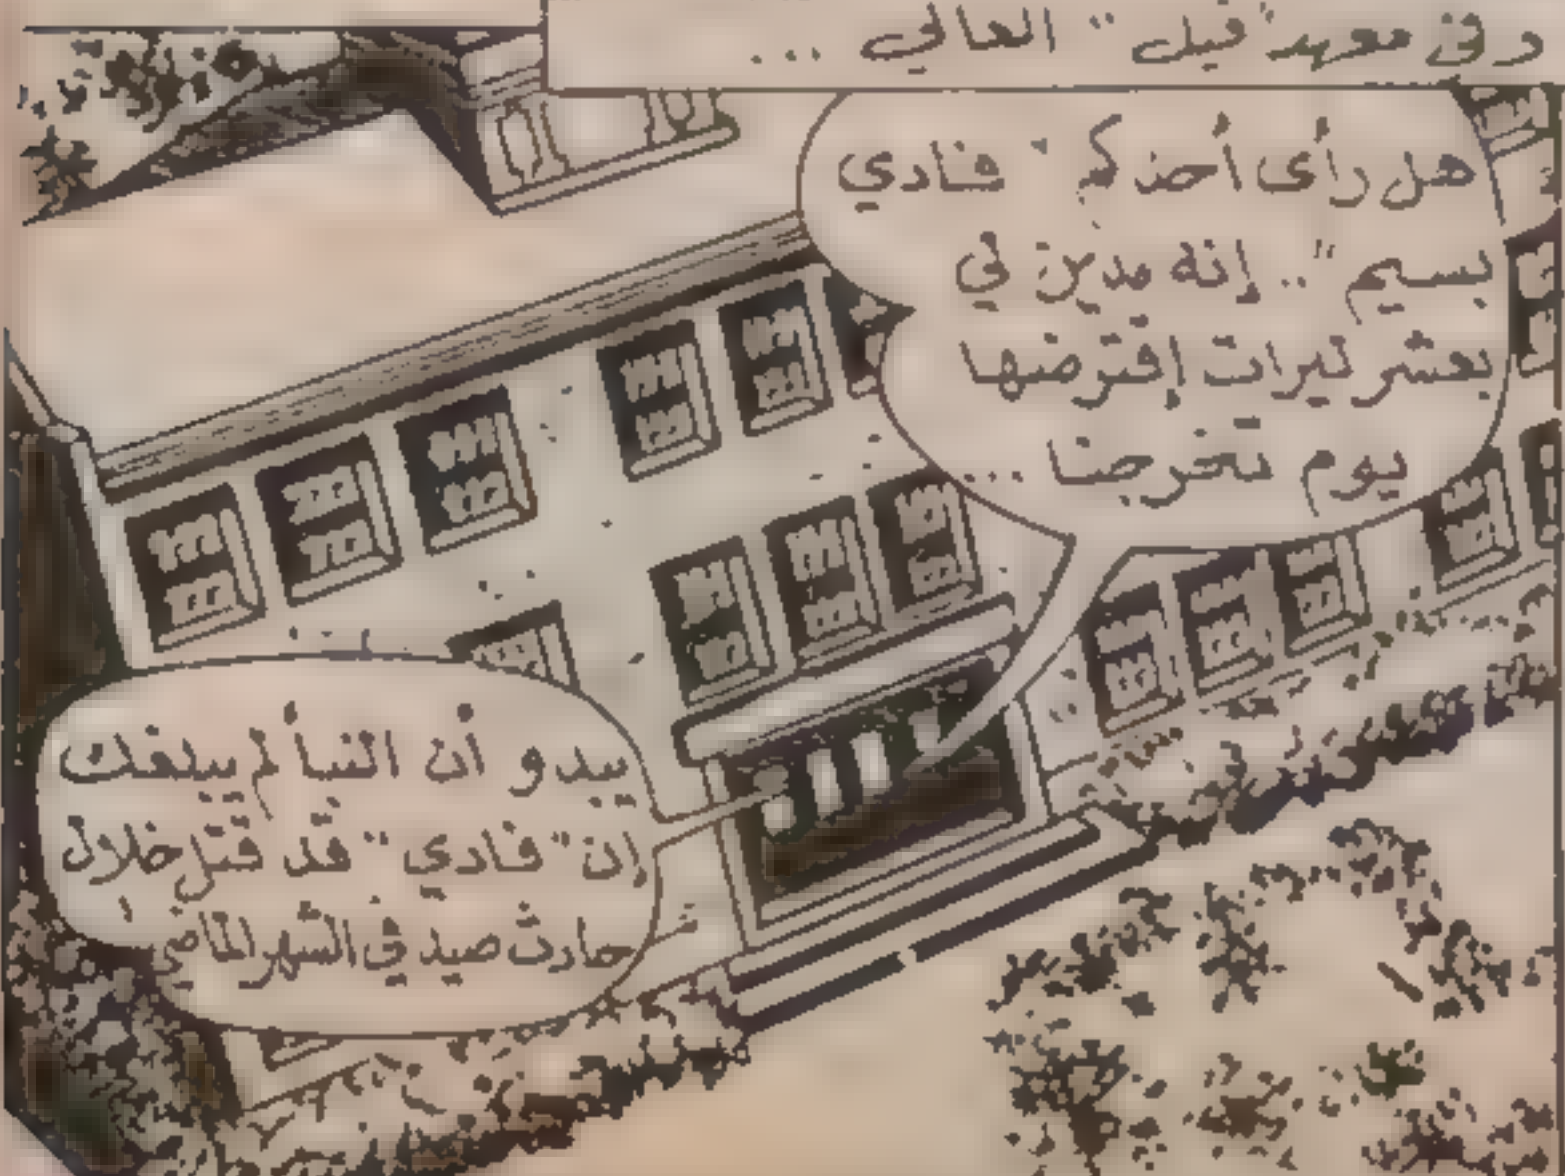 وفى معهد "فيل" العالي ...
هل رأى أحدكم "فادي
بسيم" .. إنه مدين لي
بعشر ليرات إقترضها
يوم تخرجنا ...
يبدو أن النبأ لم يبلغك
إن "فادي" قد قتل خلال
حادث صيد في الشهر الماضي